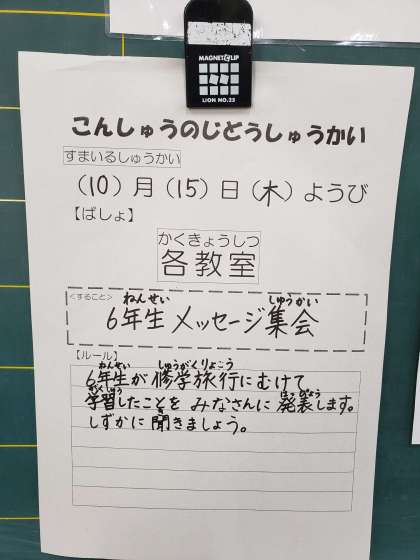 MAGNET CLIP
LION NO.23
こんしゅうのじどうしゅうかい
すまいるしゅうかい
(10)月(15)日(木)ようび
【ばしょ】
かくきょうしつ
各教室
<すること>
ねんせい しゅうかい
6年生 メッセージ集会
【ルール】
ねんせい しゅうがくりょこう
6年生が 修学旅行にむけて
がくしゅう はっぴょう
学習したことを みなさんに 発表します。
き
しずかに 聞きましょう。